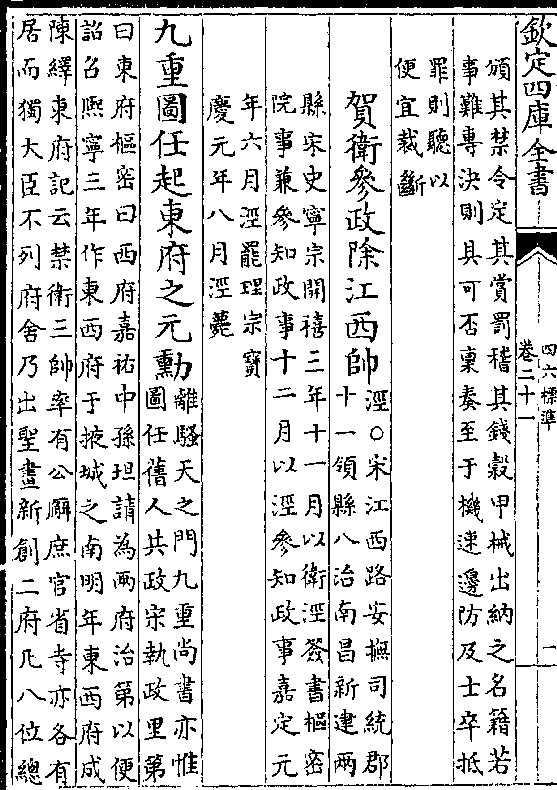 欽定四庫全書
四六標準
卷二十一
一
頒其禁令定其賞罰稽其錢穀甲械出納之名籍若
事難專決則具可否稟奏至于機速邊防及士卒抵
罪則聽以
便宜裁斷
賀衛參政除江西帥
涇○宋江西路安撫司統郡
十一領縣八治南昌新建兩
縣宋史寧宗開禧三年十一月以衛涇簽書樞密
院事兼參知政事十二月以涇參知政事嘉定元
年六月涇罷理宗寶
慶元年八月涇薨
九重圖任起東府之元勳
離騷天之門九重尚書亦惟
圖任舊人共政宋執政里第
曰東府樞密曰西府嘉祐中孫坦請為兩府治第以便
詔召熙寧三年作東西府于掖城之南明年東西府成
陳繹東府記云禁衛三帥率有公廨庶官省寺亦各有
居而獨大臣不列府舍乃出聖畫新創二府凡八位總